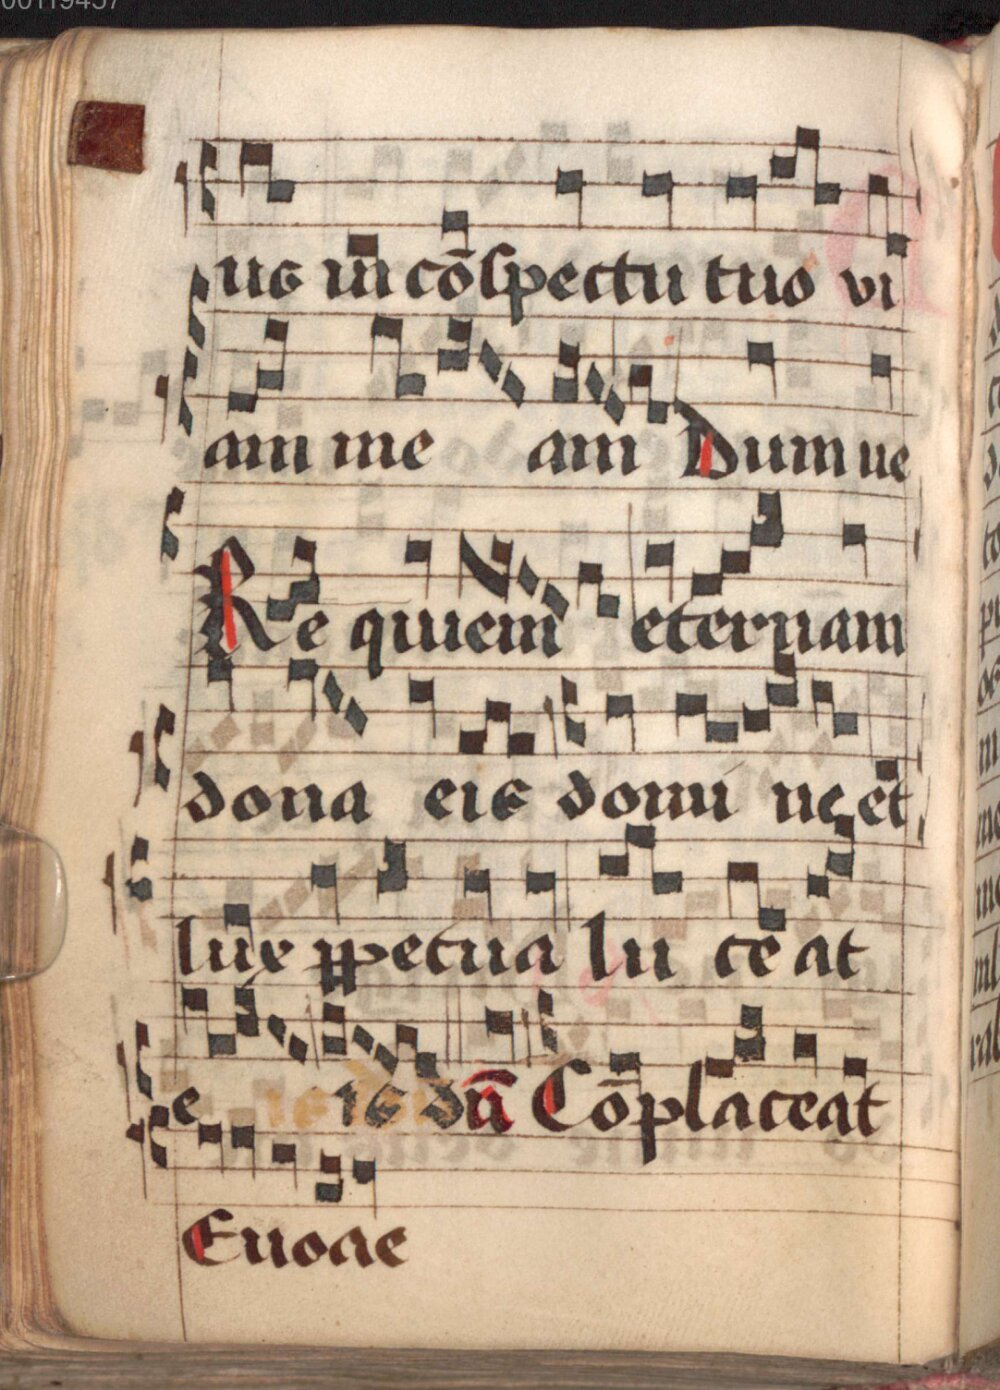 00119457
us in cōspectu tuo vi
am me am Dum ue
Re quiem eternam
dona eis domi ne et
lux ppetua lu ce at
e is dū Cōplaceat
Euoae